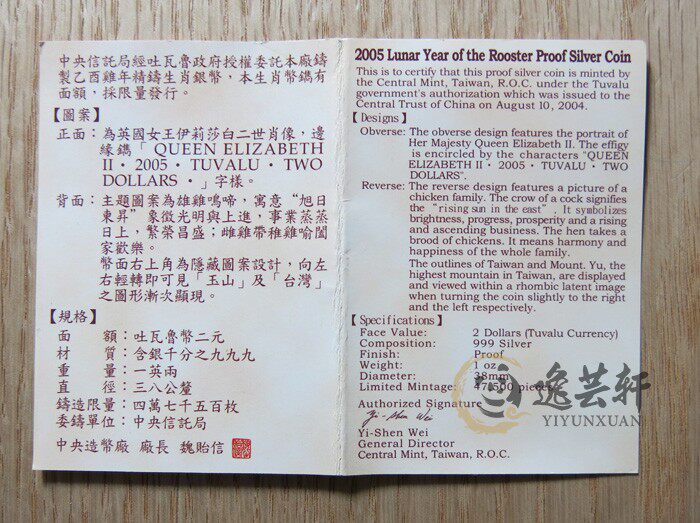 中央信託局經吐瓦魯政府授權委託本廠鑄
製乙酉雞年精鑄生肖銀幣，本生肖幣鐫有
面額，採限量發行。
【圖案】
正面：為英國女王伊莉莎白二世肖像，邊
緣鐫「 QUEEN ELIZABETH
II • 2005 • TUVALU • TWO
DOLLARS • 」字樣。
背面：主題圖案為雄雞鳴啼，寓意“旭日
東昇”象徵光明與上進，事業蒸蒸
日上，繁榮昌盛；雌雞帶稚雞喻闔
家歡樂。
幣面右上角為隱藏圖案設計，向左
右輕轉即可見「玉山」及「台灣」
之圖形漸次顯現。
【規格】
面 額：吐瓦魯幣二元
材 質：含銀千分之九九九
重 量：一英兩
直 徑：三八公釐
鑄造限量：四萬七千五百枚
委鑄單位：中央信託局
中央造幣廠 廠長 魏貽信
2005 Lunar Year of the Rooster Proof Silver Coin
This is to certify that this proof silver coin is minted by
the Central Mint, Taiwan, R.O.C. under the Tuvalu
government's authorization which was issued to the
Central Trust of China on August 10, 2004.
【Designs】
Obverse: The obverse design features the portrait of
Her Majesty Queen Elizabeth II. The effigy
is encircled by the characters "QUEEN
ELIZABETH II • 2005 • TUVALU • TWO
DOLLARS".
Reverse: The reverse design features a picture of a
chicken family. The crow of a cock signifies
the "rising sun in the east". It symbolizes
brightness, progress, prosperity and a rising
and ascending business. The hen takes a
brood of chickens. It means harmony and
happiness of the whole family.
The outlines of Taiwan and Mount. Yu, the
highest mountain in Taiwan, are displayed
and viewed within a rhombic latent image
when turning the coin slightly to the right
and the left respectively.
【Specifications】
Face Value: 2 Dollars (Tuvalu Currency)
Composition: 999 Silver
Finish: Proof
Weight: 1 oz
Diameter: 38mm
Limited Mintage: 47,500 pieces
Authorized Signature
Yi-Shen Wei
Yi-Shen Wei
General Director
Central Mint, Taiwan, R.O.C.
逸芸轩
YIYUNXUAN